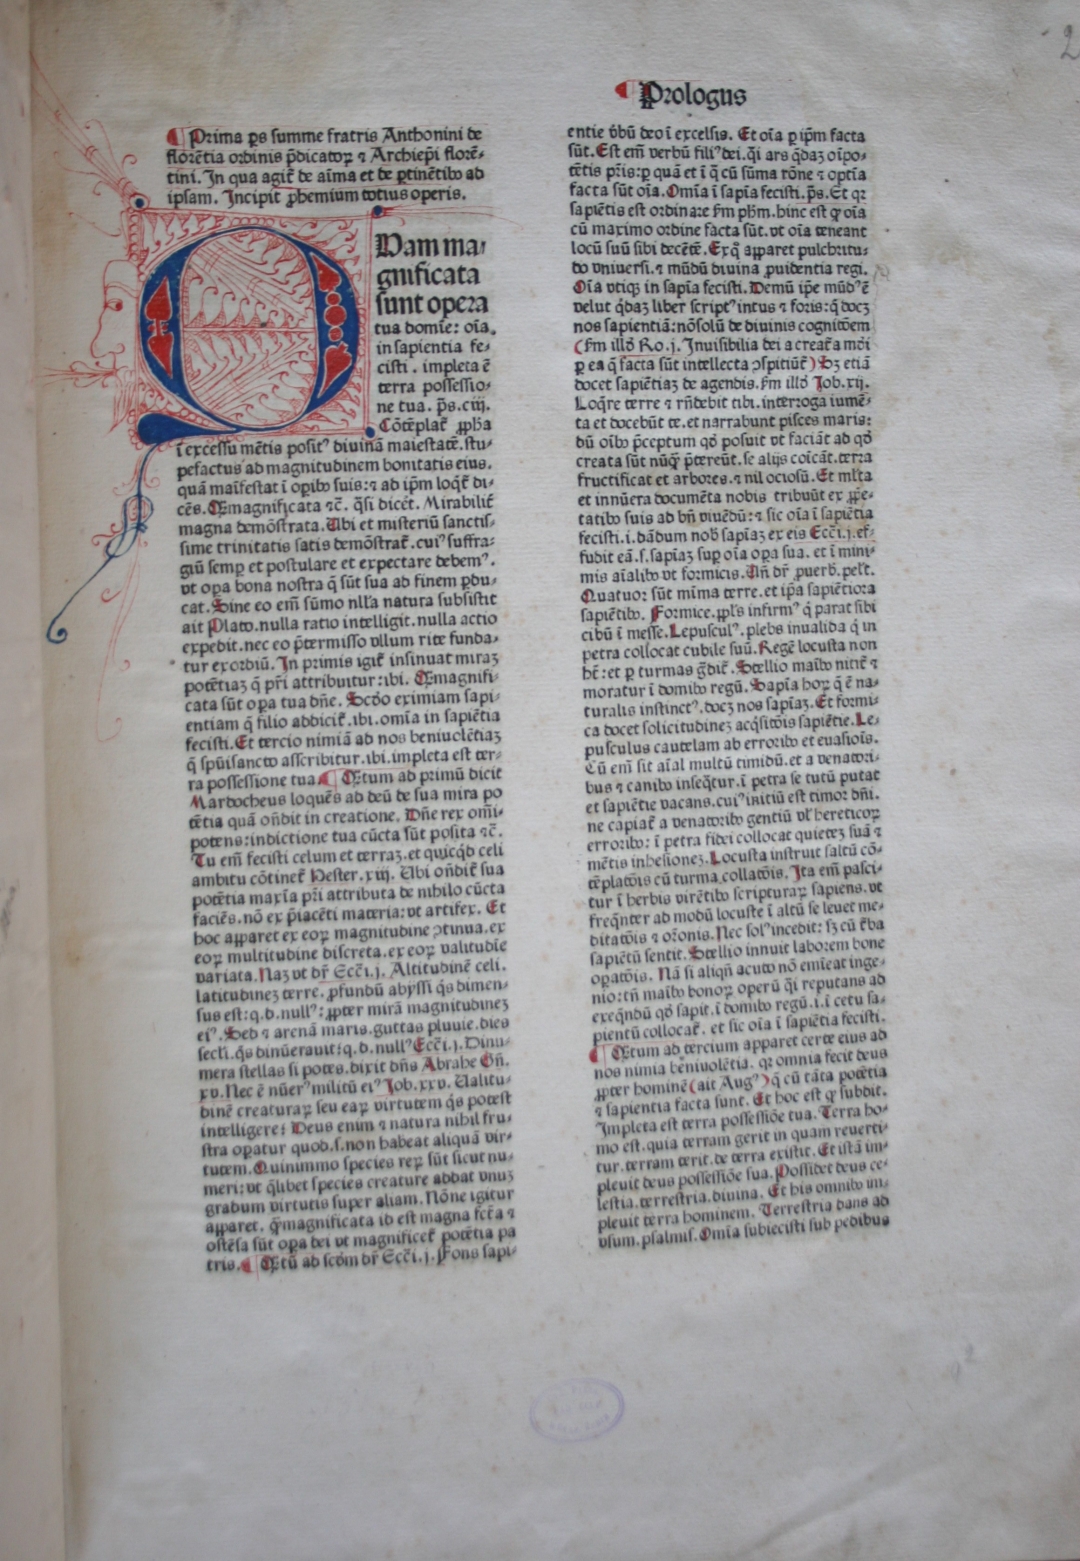 2
¶ Prologus
¶ Prima ꝑs summe fratris Anthonini de
florētia ordinis p̄dicatoꝝ ⁊ Archiep̄i florē-
tini. In qua agit᷑ de aīma et de ꝑtinētibꝰ ad
ipsam. Incipit ꝓhemium totius operis.
QUam ma-
gnificata
sunt opera
tua domīe: oīa
in sapientia fe-
cisti. impleta ē
terra possessio-
ne tua. p̄s. ciij.
Cōtēplat᷑ ꝓph̄a
ī excessu mētis positꝰ diuinā maiestatē. stu-
pefactus ad magnitudinem bonitatis eius.
quā maīfestat ī oꝑibꝰ suis: ⁊ ad ip̄m loqt᷑ di-
cēs. Qͣmagnificata ⁊c̄. q̄si dicet. Mirabilit᷑
magna demōstrata. Ubi et misteriū sanctis-
sime trinitatis satis demōstrat᷑. cuiꝰ suffra-
giū semꝑ et postulare et expectare debemꝰ.
vt oꝑa bona nostra q̄ sūt sua ad finem ꝑdu-
cat. Sine eo em̄ sūmo nll̄a natura subsistit
ait Plato. nulla ratio intelligit. nulla actio
expedit. nec eo p̄termisso vllum rite funda-
tur exordiū. In primis igit᷑ insinuat miraꝫ
potētiaꝫ q̄ pr̄i attribuitur: ibi. Qͣmagnifi-
cata sūt oꝑa tua dn̄e. Scd̄o eximiam sapi-
entiam q̄ filio addicit᷑. ibi. omīa in sapiētia
fecisti. Et tercio nimiā ad nos beniuolētiaꝫ
q̄ spūisancto asscribitur. ibi. impleta est ter-
ra possessione tua. ¶ Qͣtum ad primū dicit
Mardocheus loquēs ad deū de sua mira po
tētia quā on̄dit in creatione. Dn̄e rex omī-
potens: in dictione tua cūcta sūt posita ⁊c̄.
Tu em̄ fecisti celum et terraꝫ. et quicqͥd celi
ambitu cōtinet᷑ Hester. xiij. Ubi on̄dit᷑ sua
potētia maxīa pr̄i attributa de nihilo cūcta
faciēs. nō ex p̄iacēti materia: vt artifex. Et
hoc apꝑaret ex eoꝝ magnitudine ↄtinua. ex
eoꝝ multitudine discreta. ex eoꝝ valitudīe
variata. Naꝫ vt dr̄ Ecc̄i. j. Altitudinē celi.
latitudineꝫ terre. ꝓfundū abyssi qͥs dimen-
sus est: q. d. nullꝰ: ꝓpter mirā magnitudineꝫ
eiꝰ. Sed ⁊ arenā maris. guttas pluuie. dies
secl̄i. qͥs dinūerauit: q. d. nullꝰ Ecc̄i. j. Dinu-
mera stellas si potes. dixit dn̄s Abrahe Gn̄.
xv. Nec ē nūerꝰ militū eiꝰ Job. xxv. Ualitu-
dinē creaturaꝝ seu eaꝝ virtutem qͥs potest
intelligere: Deus enim ⁊ natura nihil fru-
stra oꝑatur quod. s. non habeat aliquā vir-
tutem. Quinimmo species reꝝ sūt sicut nu-
meri: vt q̄libet species creature addat vnuꝫ
gradum virtutis super aliam. Nōne igitur
apꝑaret. qͣmagnificata id est magna fct̄a ⁊
ostēsa sūt oꝑa dei vt magnificet᷑ potētia pa
tris. ¶ Qͣtū ad scd̄m dr̄ Ecc̄i. j. Fons sapi-
entie v̄bū dei ī excelsis. Et oīa ꝑ ip̄m facta
sūt. Est em̄ verbū filiꝰ dei. qͥ ars q̄daꝫ oīpo-
tētis pr̄is: ꝑ quā et ī q̄ cū sūma rōne ⁊ optīa
facta sūt oīa. Omīa ī sapīa fecisti. p̄s. Et qꝛ
sapiētis est ordinare ẜm ph̄m. hinc est ꝙ oīa
cū maximo ordine facta sūt. vt oīa teneant
locū suū sibi decētē. Ex qͦ apꝑaret pulchritu-
do vniuersi. ⁊ mūdū diuina ꝓuidentia regi.
Oīa vtiqꝫ in sapīa fecisti. Demū ip̄e mūdꝰ ē
velut q̄daꝫ liber scriptꝰ intus ⁊ foris: q̄ docꝫ
nos sapientiā: nōsolū de diuinis cognitōem
(ẜm illd̄ Ro. j. Inuisibilia dei a creat᷑a mōi
ꝑ ea q̄ facta sūt intellecta ↄspitiūt᷑) Sꝫ etiā
docet sapiētiaꝫ de agendis. ẜm illd̄ Job. xij.
Loq̄re terre ⁊ rn̄debit tibi. interroga iumē-
ta et docebūt te. et narrabunt pisces maris:
dū oībꝰ p̄ceptum qd̄ posuit vt faciāt ad qd̄
creata sūt nūqͣ p̄tereūt. se alijs coīcāt. terra
fructificat et arbores. ⁊ nil ociosū. Et ml̄ta
et innūera documēta nobis tribuūt ex ꝓpe-
tatibꝰ suis ad bn̄ viuēdū: ⁊ sic oīa ī sapiētia
fecisti. i. dādum nob̄ sapīaꝫ ex eis Ecc̄i. j. ef-
fudit eā. s. sapīaꝫ suꝑ oīa oꝑa sua. et ī mini-
mis aīalibꝰ vt formicis. Un̄ dr̄ ꝓuerb. pel̄t.
Quatuor sūt mīma terre. et ip̄a sapiētiora
sapiētibꝰ. Formice. ppl̄s infirmꝰ q̄ parat sibi
cibū ī messe. Lepusculꝰ. plebs inualida q̄ in
petra collocat cubile suū. Regē locusta non
hꝫ: et ꝑ turmas gͣdit᷑. Stellio maībꝰ nitit᷑ ⁊
moratur ī domibꝰ regū. Sapīa hoꝝ q̄ ē na-
turalis instinctꝰ. docꝫ nos sapīaꝫ. Et formi-
ca docet solicitudineꝫ acqͥsitōis sapiētie. Le-
pusculus cautelam ab erroribꝰ et euasiōis.
Cū em̄ sit aīal multū timidū. et a venatori-
bus ⁊ canibꝰ inseqͣtur. ī petra se tutū putat
et sapiētie vacans. cuiꝰ initiū est timor dn̄i.
ne capiat᷑ a venatoribꝰ gentiū vl̄ hereticoꝝ
erroribꝰ: ī petra fidei collocat quieteꝫ suā ⁊
mētis inhesioneꝫ. Locusta instruit saltū cō-
tēplatōis cū turma collatōis. Ita em̄ pasci-
tur ī herbis virētibꝰ scripturaꝝ sapiens. vt
freqͣnter ad modū locuste ī altū se leuet me-
ditatōis ⁊ orōnis. Nec solꝰ incedit: sꝫ cū t᷑ba
sapiētū sentit. Stellio innuit laborem bone
oꝑatōis. Nā si aliqn̄ acuto nō emīeat inge-
nio: tn̄ maībꝰ bonoꝝ operū qͥ reputans ad
exeqͣndū qd̄ sapit. ī domibꝰ regū. i. ī cetu sa-
pientū collocat᷑. et sic oīa ī sapiētia fecisti.
¶ Qͣtum ad tercium apparet certe eius ad
nos nimia beniuolētia. qꝛ omnia fecit deus
ꝓpter hominē (ait Augꝰ) q̄ cū tāta potētia
⁊ sapientia facta sunt. Et hoc est ꝙ subdit.
Impleta est terra possessiōe tua. Terra ho-
mo est. quia terram gerit in quam reuerti-
tur. terram terit. de terra existit. Et istā im-
pleuit deus possessiōe sua. Possidet deus ce-
lestia. terrestria. diuina. Et his omnibꝰ im-
pleuit terra hominem. Terrestria dans ad
vsum. psalmis. Omīa subiecisti sub pedibus